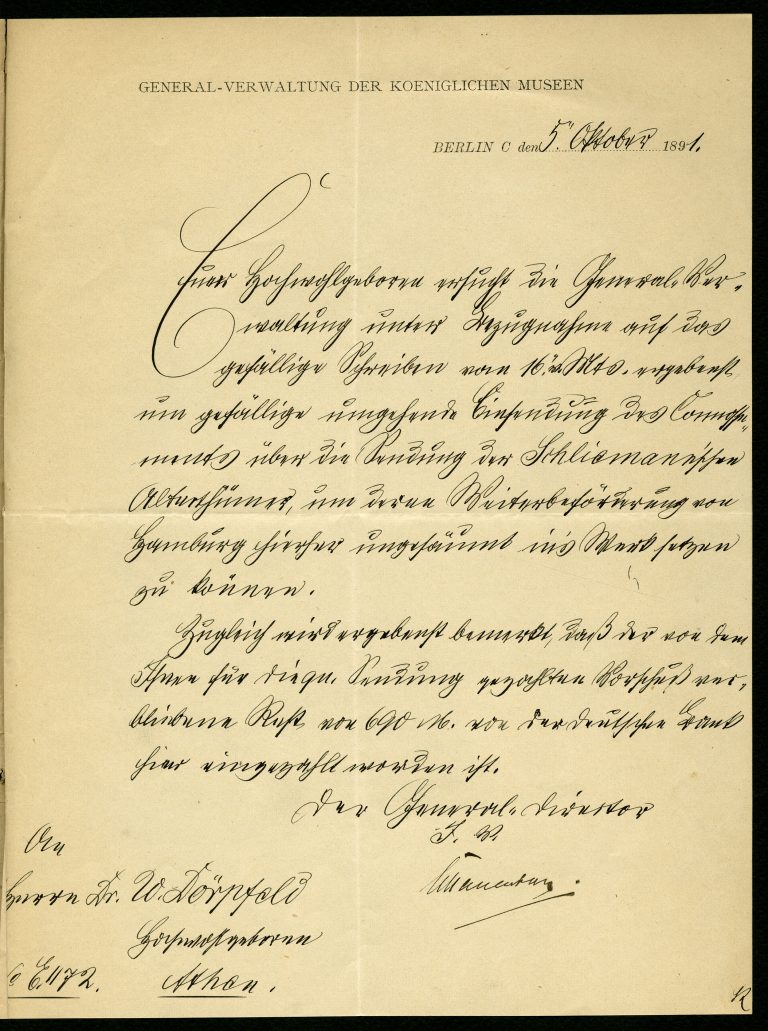 GENERAL-VERWALTUNG DER KOENIGLICHEN MUSEEN
BERLIN C den 5. Oktober 1891.
Euer Hochwohlgeboren ersucht die General-Ver-
waltung unter Bezugnahme auf das
gefällige Schreiben vom 16. v. Mts. ergebenst
um gefällige umgehende Einsendung des Connosse-
ments über die Sendung der Schliemann'schen
Alterthümer, um deren Weiterbeförderung von
Hamburg hierher ungesäumt in's Werk setzen
zu können.
Zugleich wird ergebenst bemerkt, daß der von dem
Ihnen für die qu. Sendung gezahlten Vorschuß ver-
bliebene Rest von 690 M. von der deutschen Bank
hier eingezahlt worden ist.
Der General-Director
I. V.
An
Herrn Dr. W. Dörpfeld
Hochwohlgeboren
E. 1172.
Athen.